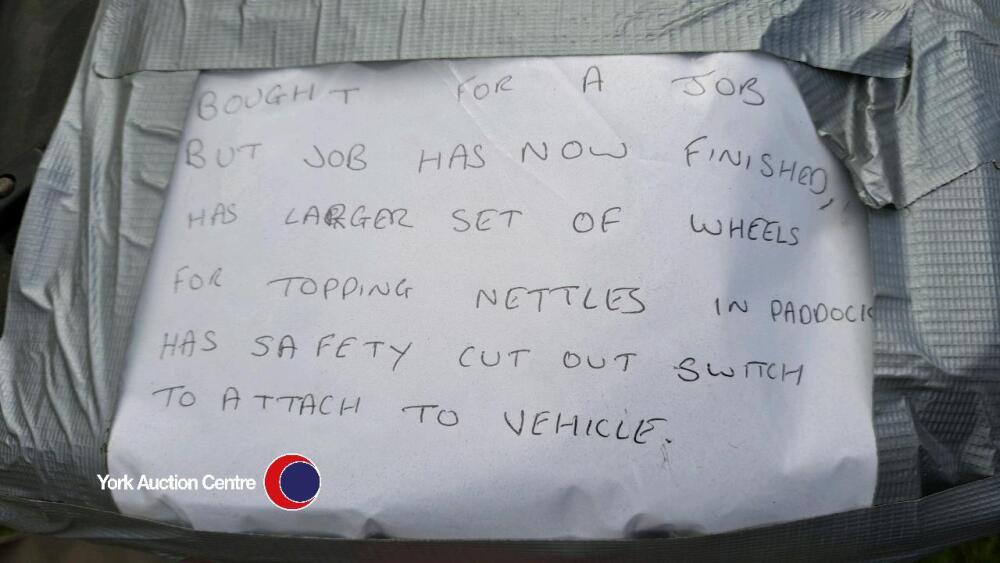 BOUGHT FOR A JOB
BUT JOB HAS NOW FINISHED,
HAS LARGER SET OF WHEELS
FOR TOPPING NETTLES IN PADDOCK
HAS SAFETY CUT OUT SWITCH
TO ATTACH TO VEHICLE.
York Auction Centre